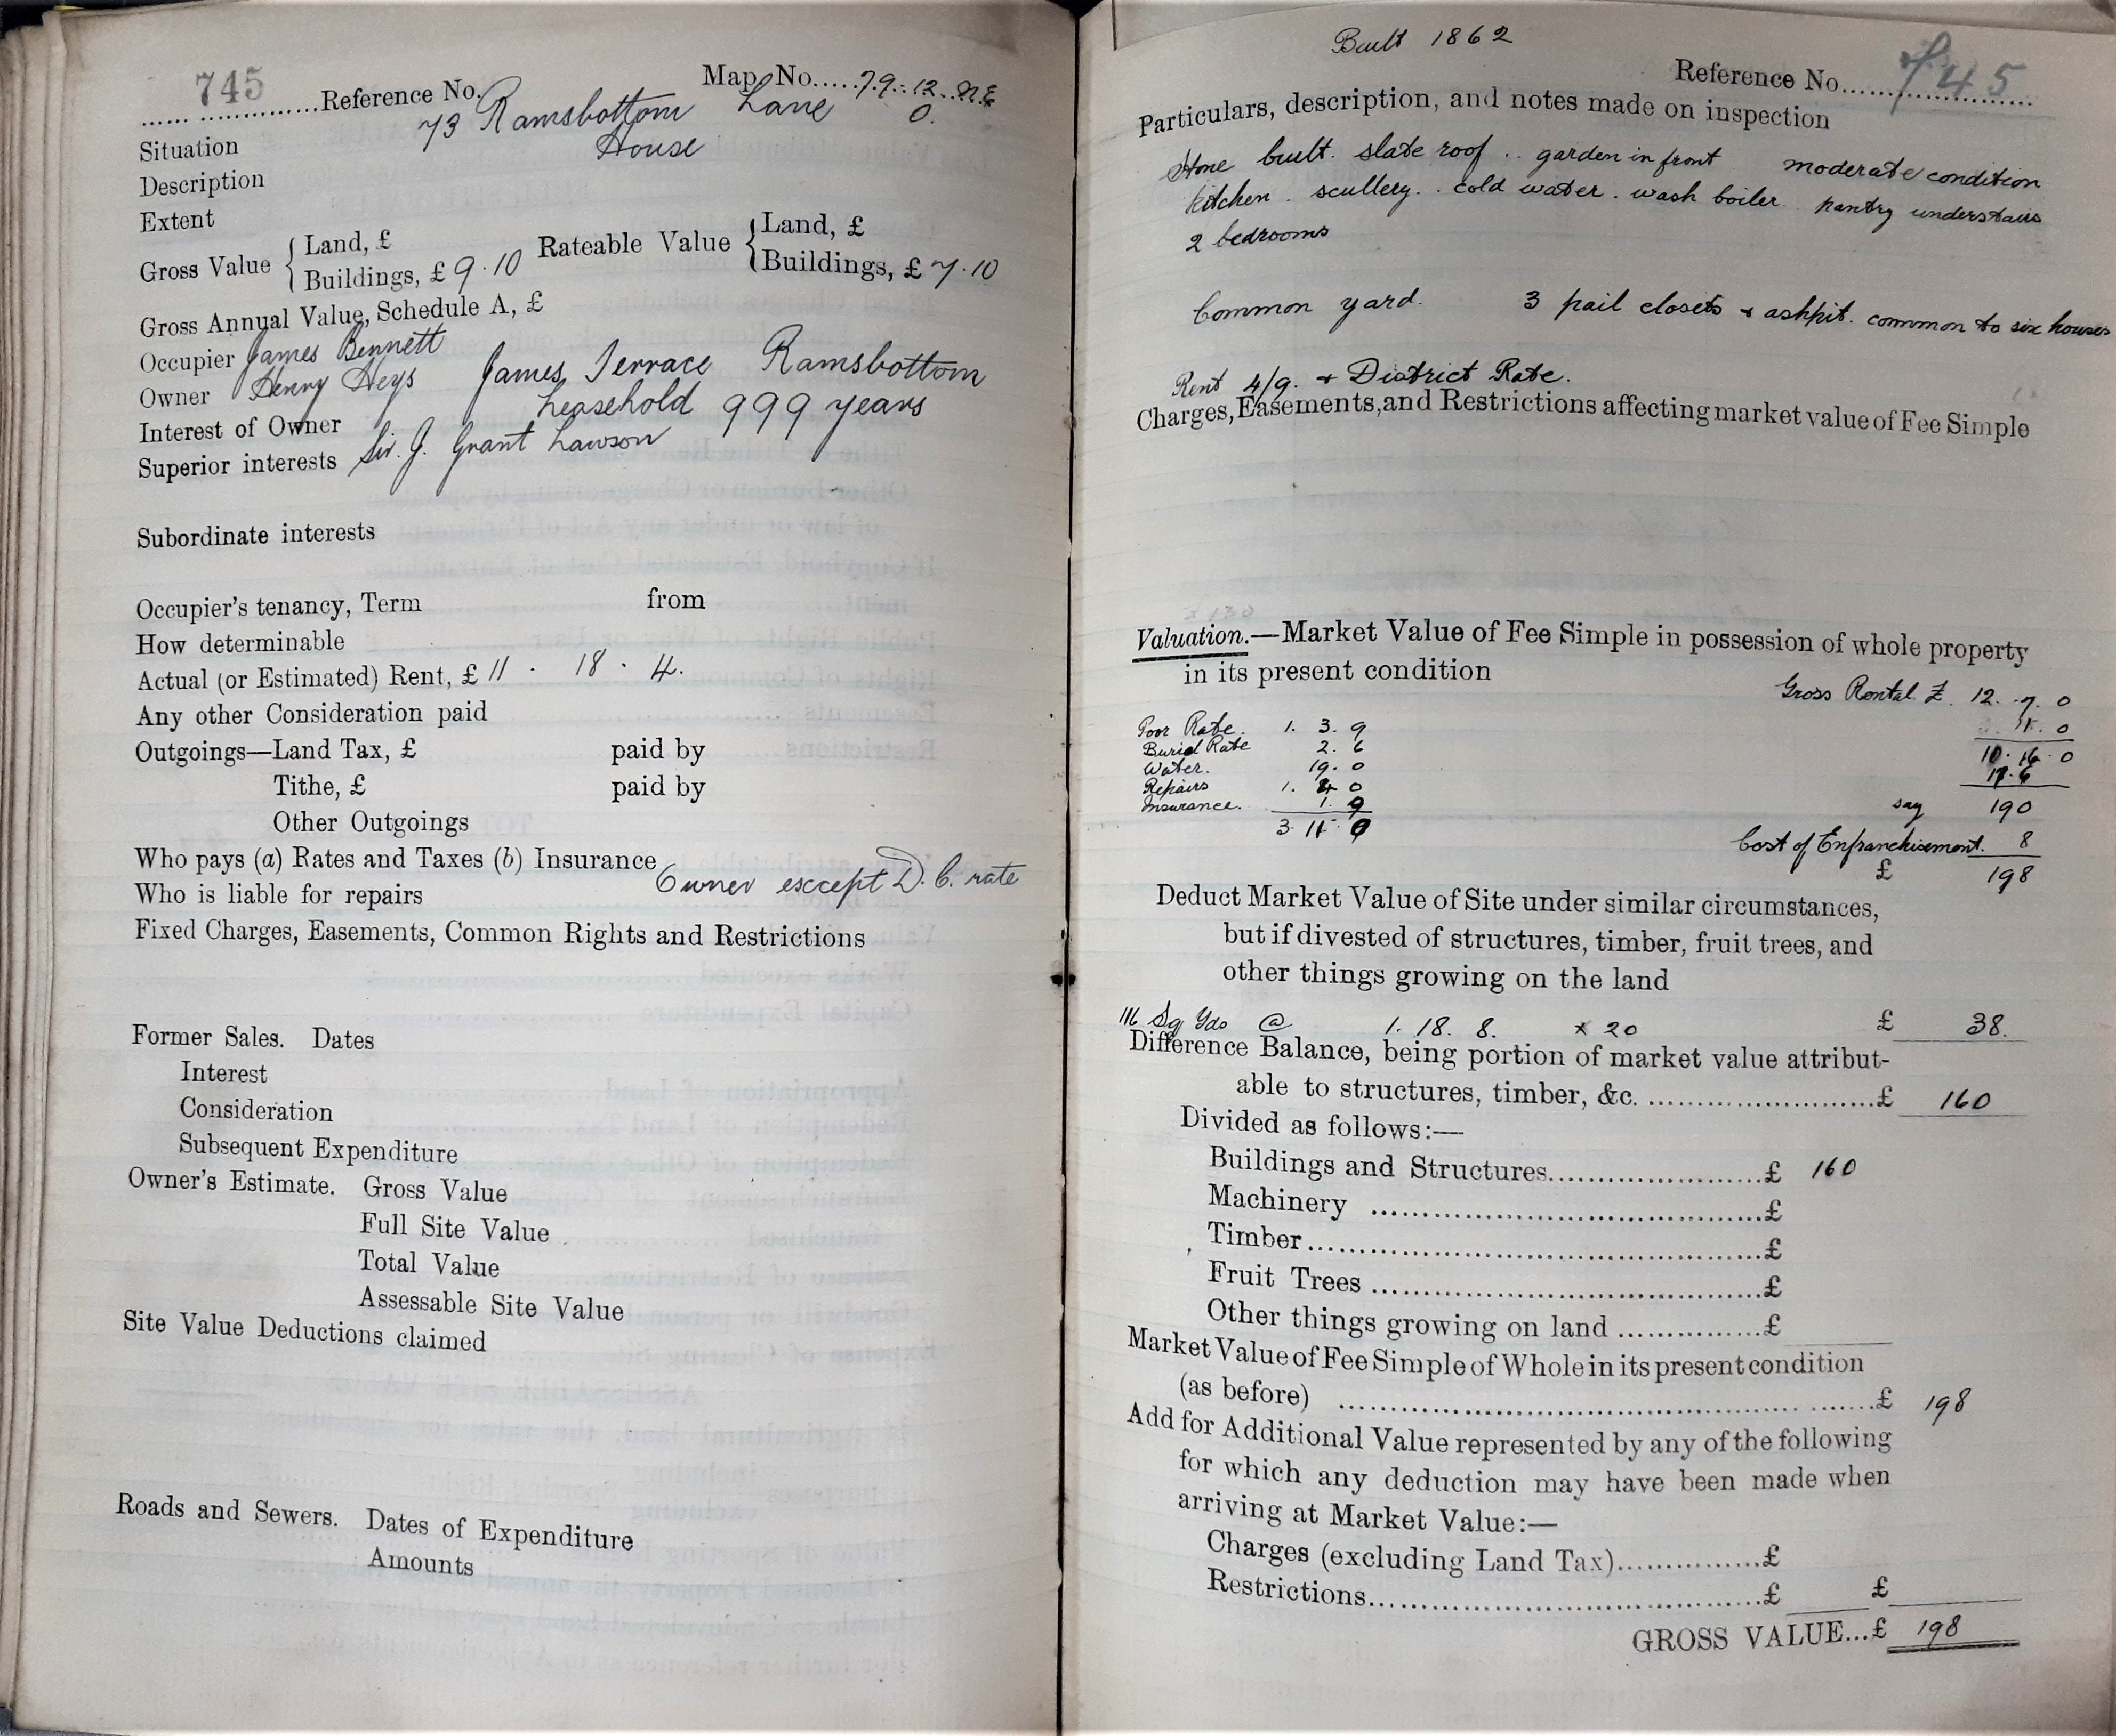 745
Reference No. Map No. 79.12.N.E
73 Ramsbottom Lane 0.
Situation
House
Description
Extent
Gross Value { Land, £ Rateable Value { Land, £
Buildings, £ 9.10 Buildings, £ 7.10
Gross Annual Value, Schedule A, £
Occupier James Bennett
Owner Henry Heys James Terrace Ramsbottom
Interest of Owner Leasehold 999 years
Superior interests Sir. J. Grant Lawson
Subordinate interests
Occupier's tenancy, Term from
How determinable
Actual (or Estimated) Rent, £ 11 . 18 . 4.
Any other Consideration paid
Outgoings—Land Tax, £ paid by
Tithe, £ paid by
Other Outgoings
Who pays (a) Rates and Taxes (b) Insurance
Who is liable for repairs Owner except D.C. rate
Fixed Charges, Easements, Common Rights and Restrictions
Former Sales. Dates
Interest
Consideration
Subsequent Expenditure
Owner's Estimate. Gross Value
Full Site Value
Total Value
Assessable Site Value
Site Value Deductions claimed
Roads and Sewers. Dates of Expenditure
Amounts
Built 1862
Reference No. 745
Particulars, description, and notes made on inspection
Stone built. slate roof .. garden in front moderate condition
kitchen . scullery. . cold water . wash boiler . pantry understairs
2 bedrooms
Common yard. 3 pail closets + ashpit. common to six houses
Rent 4/9. + District Rate.
Charges, Easements, and Restrictions affecting market value of Fee Simple
Valuation.—Market Value of Fee Simple in possession of whole property
in its present condition
Gross Rental. £ 12. 7. 0
Poor Rate. 1. 3. 9
Burial Rate 2. 6
Water. 19. 0 10. 16. 0
Repairs 1. 4. 0 17.6
Insurance. 1. 9 say 190
3. 11. 0
Cost of Enfranchisement. 8
£ 198
Deduct Market Value of Site under similar circumstances,
but if divested of structures, timber, fruit trees, and
other things growing on the land
116 Sq Yds @ 1. 18. 8. x 20 £ 38.
Difference Balance, being portion of market value attribut-
able to structures, timber, &c. £ 160
Divided as follows:—
Buildings and Structures £ 160
Machinery £
Timber £
Fruit Trees £
Other things growing on land £
Market Value of Fee Simple of Whole in its present condition
(as before) £ 198
Add for Additional Value represented by any of the following
for which any deduction may have been made when
arriving at Market Value:—
Charges (excluding Land Tax) £
Restrictions £ £
GROSS VALUE...£ 198